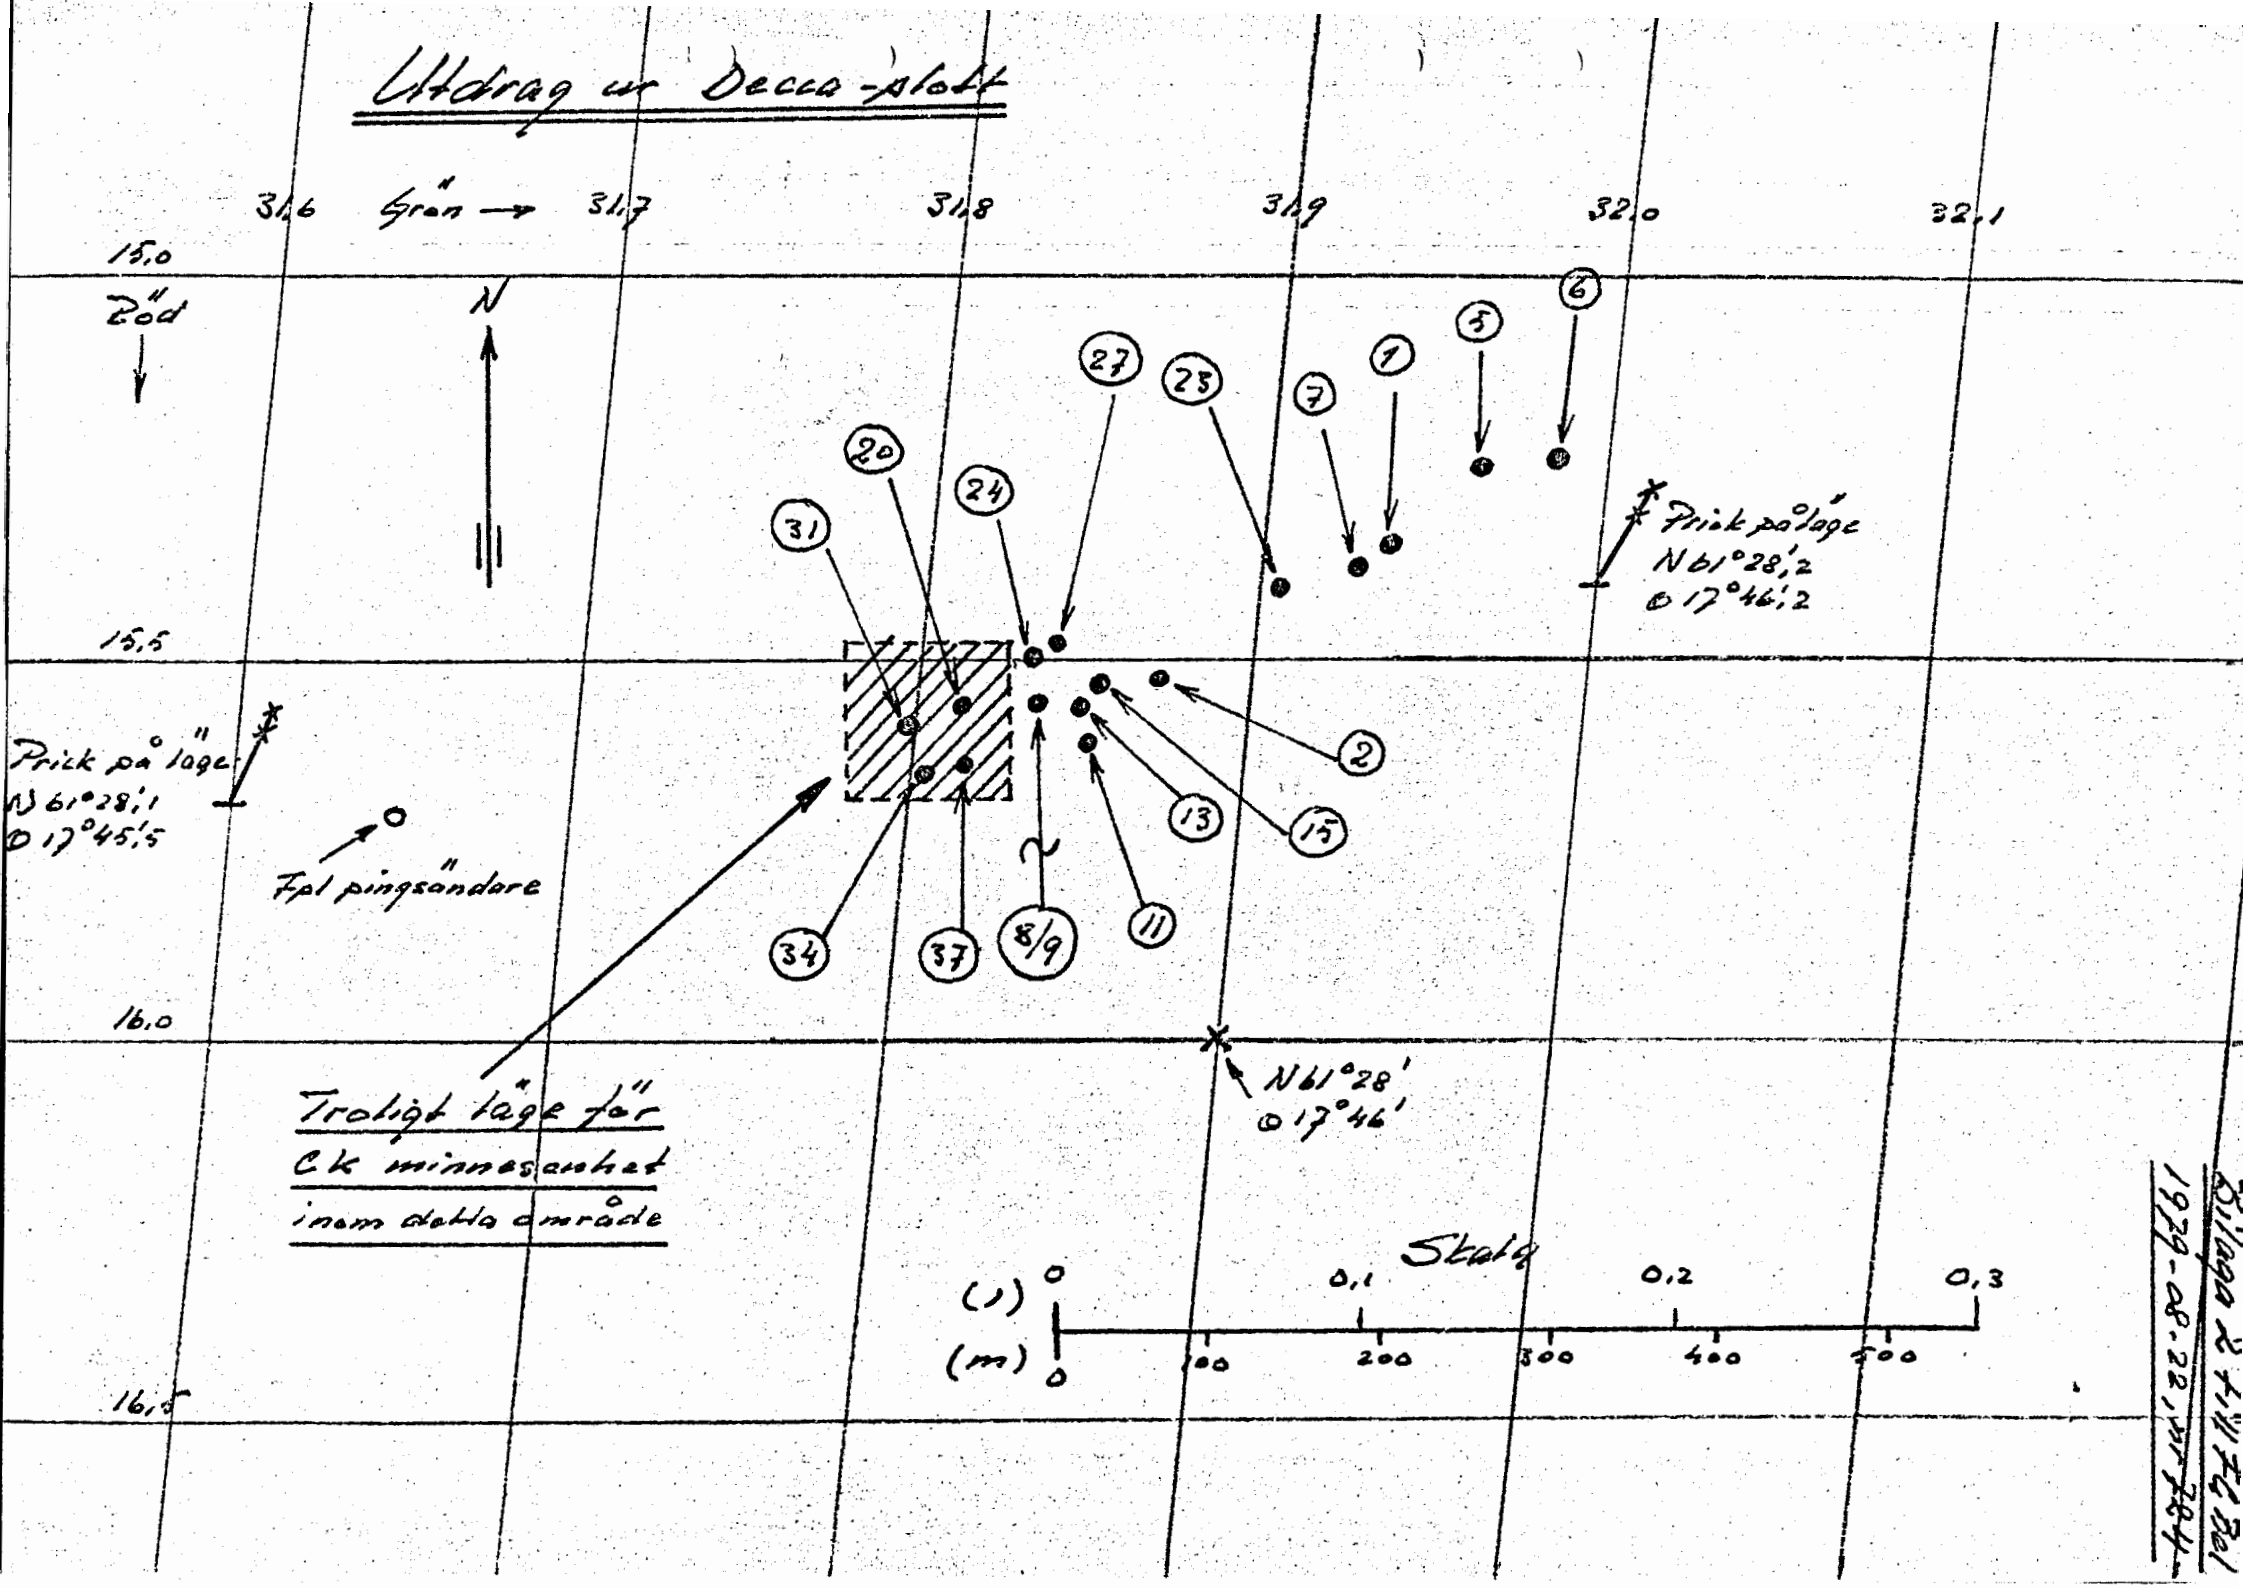 Utdrag ur Decca-plott
31,6 Grön → 31,7 31,8 31,9 32,0 32,1
15,0
Röd
N
6
5
1
27
23
7
20
24
31
Prick på läge
N 61°28',2
O 17°46',2
15,5
Prick på läge
N 61°28',1
O 17°45',5
2
13
15
Fpl pingsändare
34
37
8/9
11
16,0
N 61°28'
O 17°46'
Troligt läge för
CK minnesenhet
inom detta område
Skala
(') 0 0,1 0,2 0,3
(m) 0 100 200 300 400 500
16,5
Bilaga 2 till
1979-08-22, nr 724